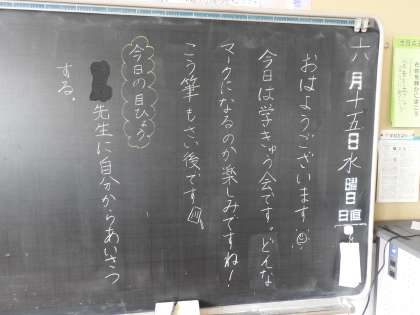 六月十五日水曜日
日直
おはようございます
今日は学きゅう会です。どんな
マークになるのか楽しみですね!
こう筆もさい後です
今日の目ひょう
先生に自分からあいさつ
する。